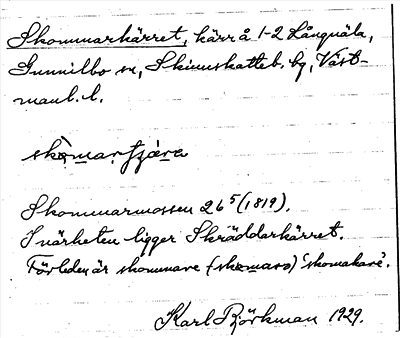 Skommarkärret, kärr å 1-2 Långnäla,
Gunnilbo sn, Skinnskatteb. bg, Väst-
manl. l.
skòmarṣçæra
Skommarmossen 26⁵ (1819).
I närheten ligger Skräddarkärret.
Förleden är skommare (skomara) 'skomakare'.
Karl Björkman 1929.